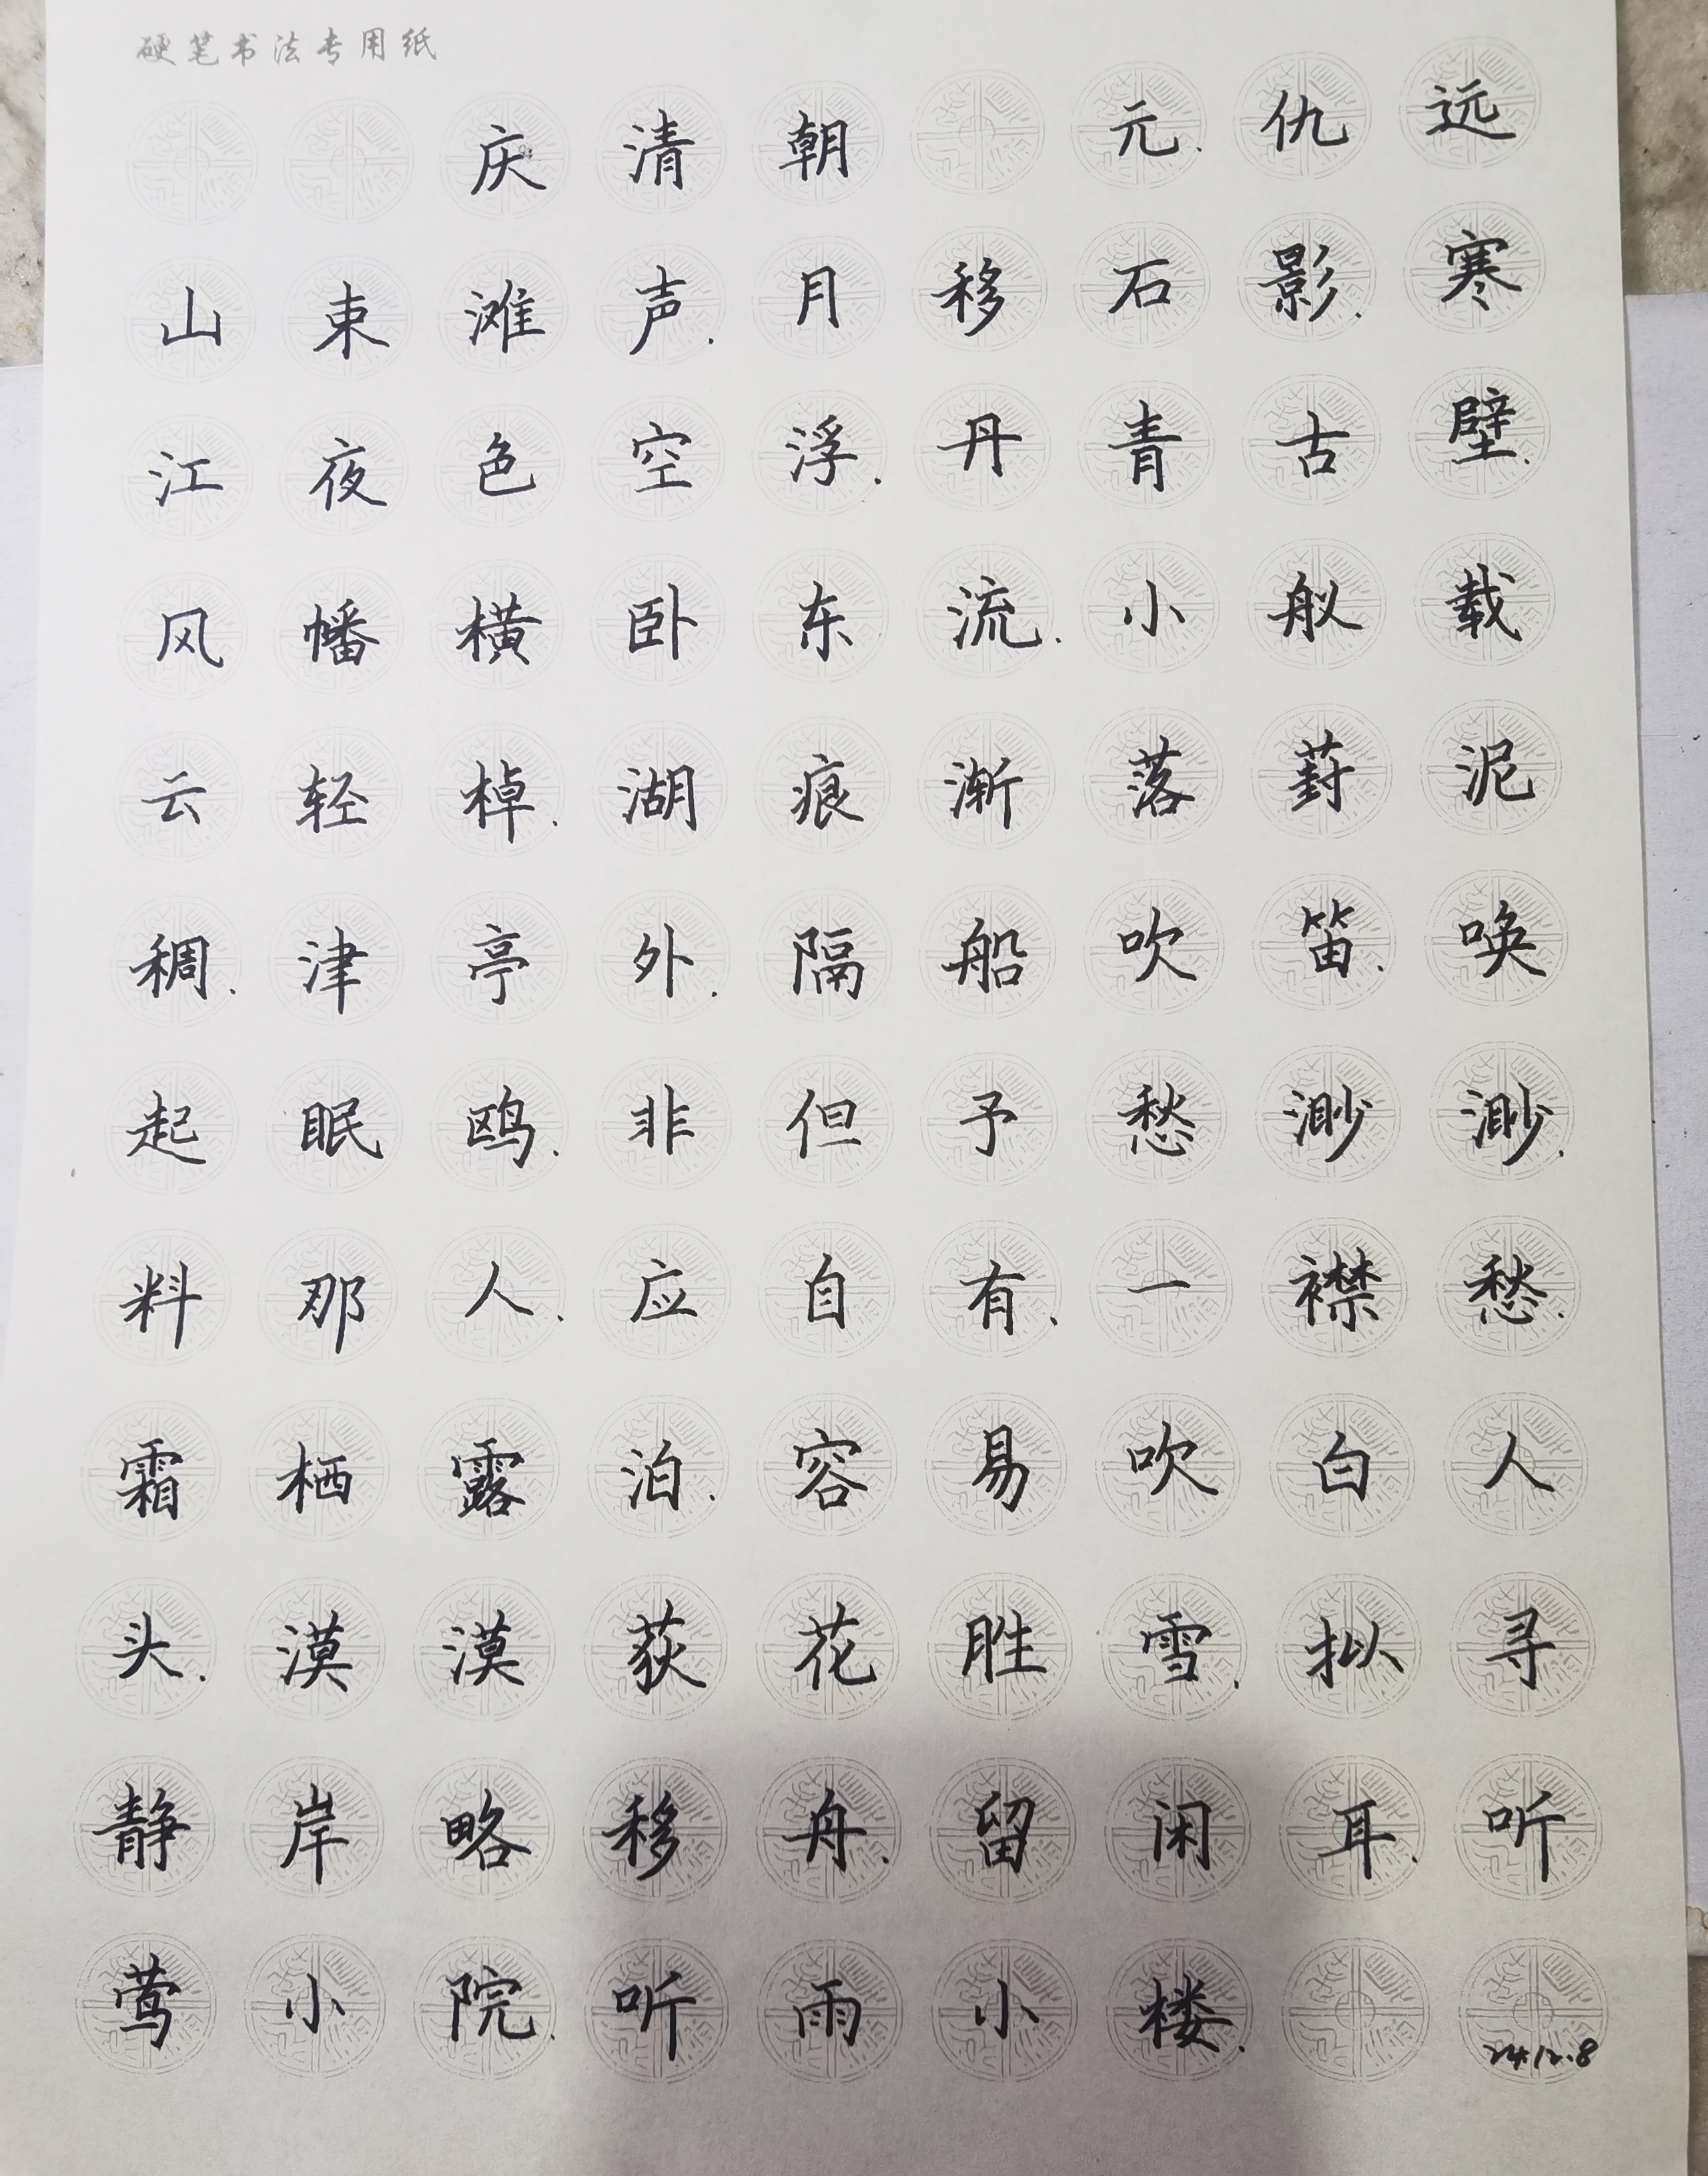 硬笔书法专用纸
庆清朝 元.仇远
山束滩声.月移石影.寒
江夜色空浮.丹青古壁.
风幡横卧东流.小舣载
云轻棹.湖痕渐落葑泥
稠.津亭外.隔船吹笛.唤
起眠鸥.非但予愁渺渺.
料那人.应自有.一襟愁.
霜栖露泊.容易吹白人
头.漠漠荻花胜雪.拟寻
静岸略移舟.留闲耳.听
莺小院.听雨小楼.
24.12.8